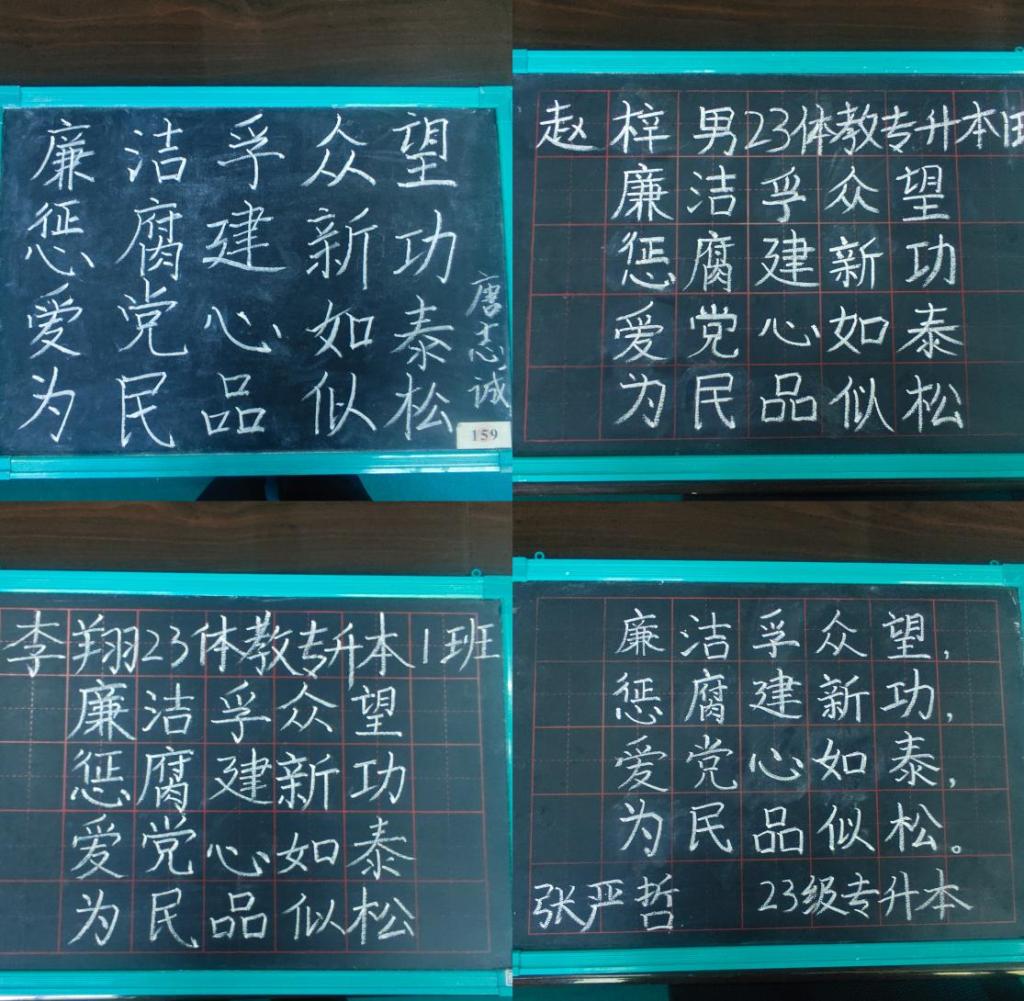 廉洁孚众望
惩腐建新功
爱党心如泰
为民品似松
唐志诚
159
赵梓男23体教专升本
廉洁孚众望
惩腐建新功
爱党心如泰
为民品似松
李翔23体教专升本1班
廉洁孚众望
惩腐建新功
爱党心如泰
为民品似松
廉洁孚众望,
惩腐建新功,
爱党心如泰,
为民品似松。
张严哲 23级专升本